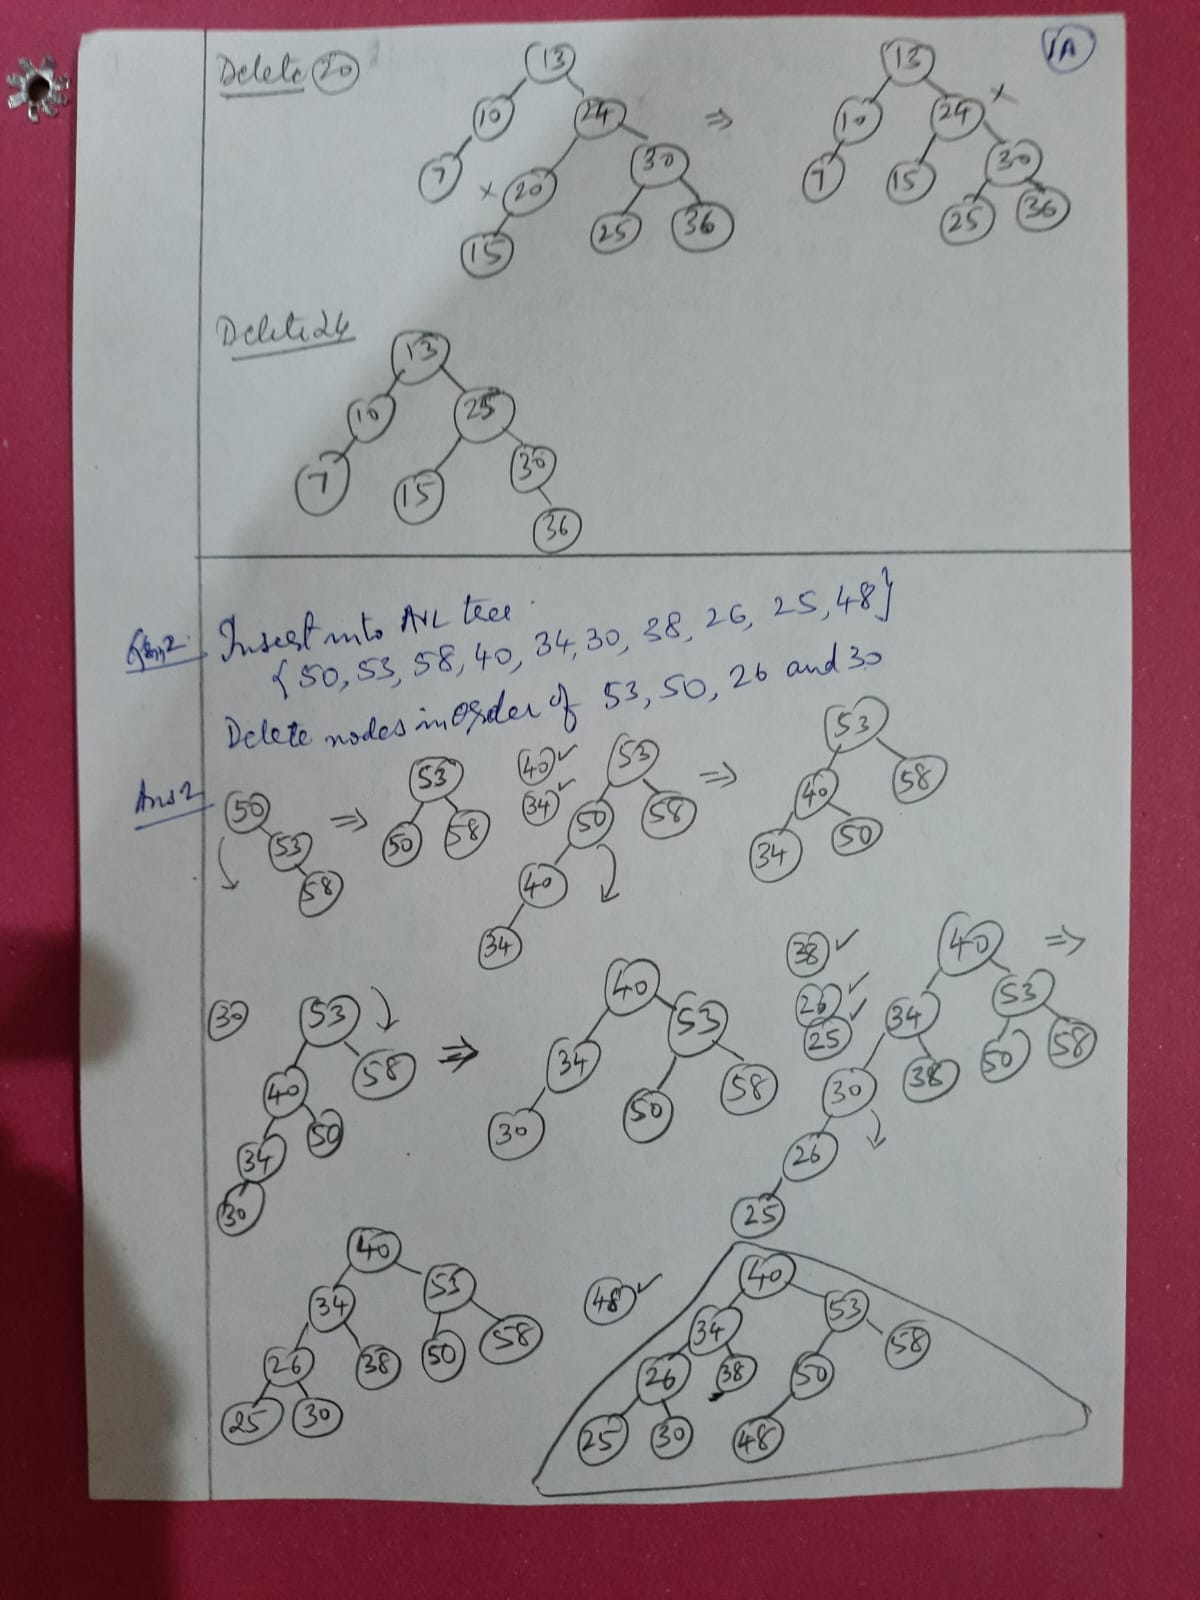 1A
Delete 20
13
10 24
7 20 30
15 25 36
⇒
13
10 24
7 15 30
25 36
Delete 24
13
10 25
7 15 30
36
Qsn 2. Insert into AVL tree.
{50, 53, 58, 40, 34, 30, 38, 26, 25, 48}
Delete nodes in order of 53, 50, 26 and 30
Ans 2
50
53
58
⇒
53
50 58
40 ✓
34 ✓
53
50 58
40
34
⇒
53
40 58
34 50
30
53
40 58
34 50
30
⇒
40
34 53
30 50 58
38 ✓
26 ✓
25 ✓
40
34 53
30 38 50 58
26
25
⇒
40
34 53
26 38 50 58
25 30
48 ✓
40
34 53
26 38 50 58
25 30 48